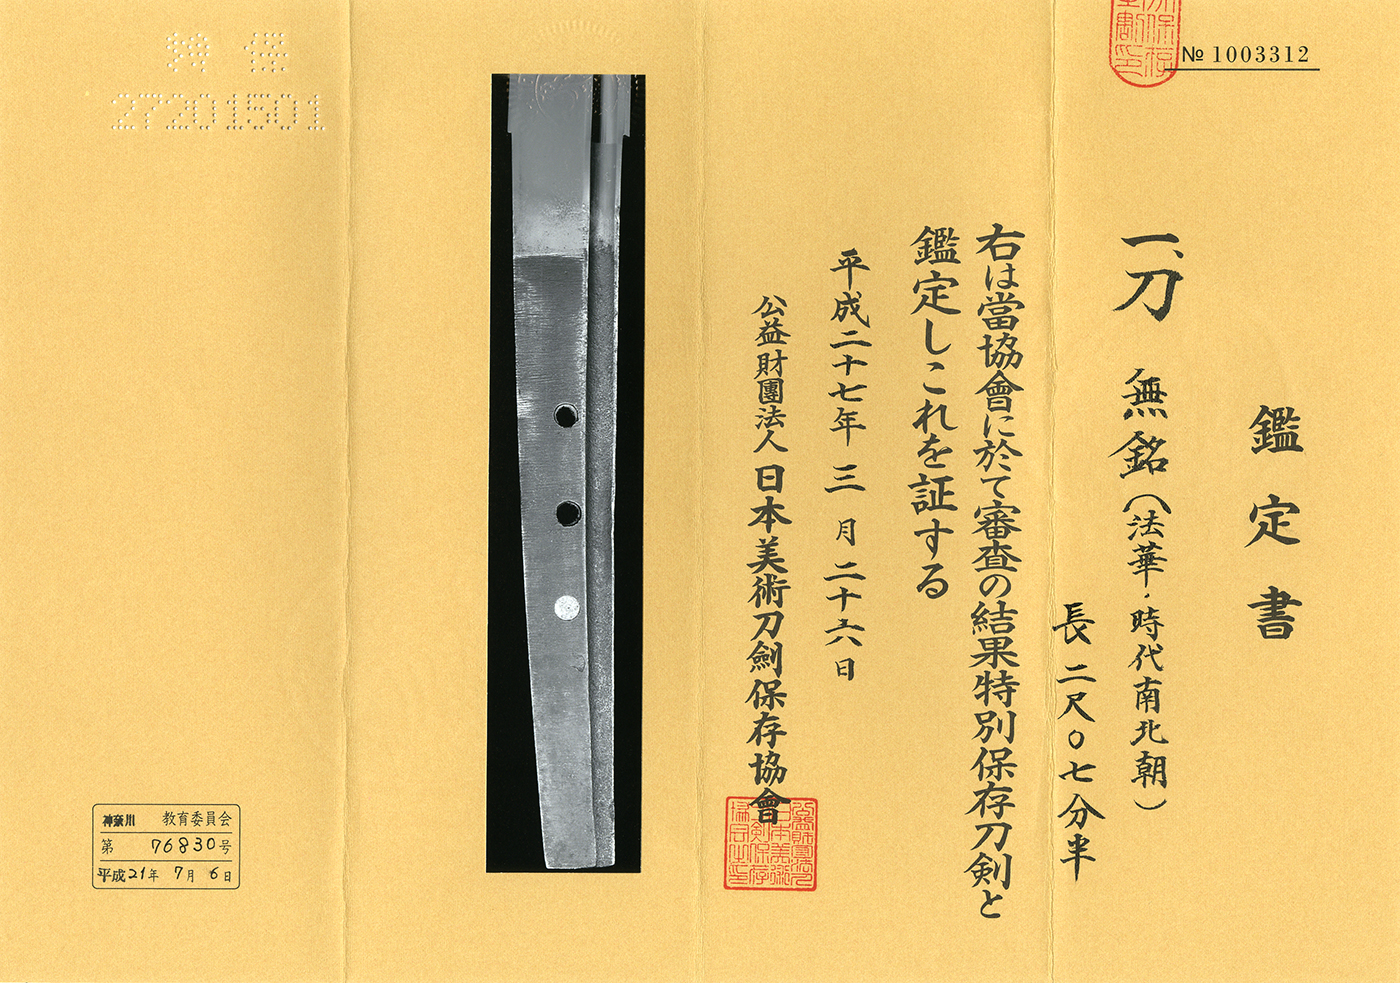 № 1003312
鑑定書
一、刀 無銘(法華・時代南北朝)
長二尺〇七分半
右は當協會に於て審査の結果特別保存刀剣と
鑑定しこれを証する
平成二十七年三月二十六日
公益財團法人日本美術刀劍保存協會
27201501
神奈川 教育委員会
第 76830号
平成21年 7月 6日